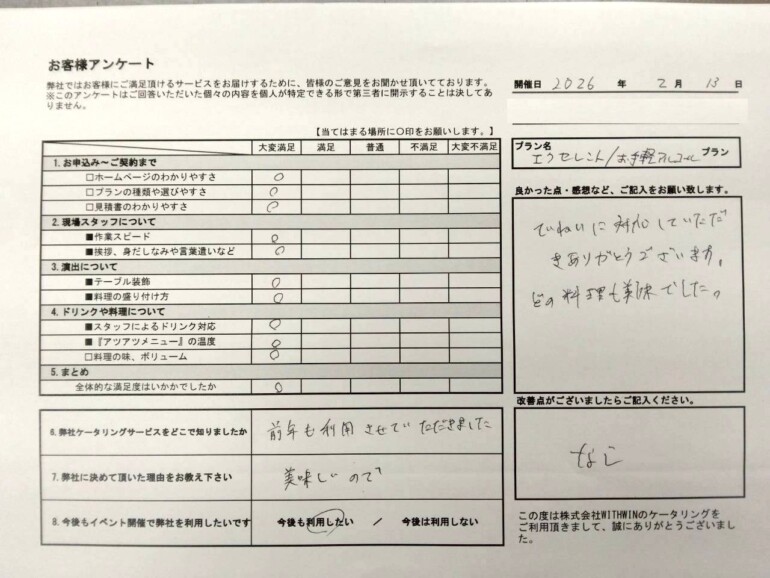 お客様アンケート
弊社ではお客様にご満足頂けるサービスをお届けするために、皆様のご意見をお聞かせ頂いております。
※このアンケートはご回答いただいた個々の内容を個人が特定できる形で第三者に開示することは決してあ
りません。
開催日 2026 年 2月 13 日
【当てはまる場所に〇印をお願いします。】
大変満足 満足 普通 不満足 大変不満足
1.お申込み～ご契約まで
□ホームページのわかりやすさ 〇
□プランの種類や選びやすさ 〇
□見積書のわかりやすさ 〇
2.現場スタッフについて
■作業スピード 〇
■挨拶、身だしなみや言葉遣いなど 〇
3.演出について
■テーブル装飾 〇
■料理の盛り付け方 〇
4.ドリンクや料理について
■スタッフによるドリンク対応 〇
■『アツアツメニュー』の温度 〇
□料理の味、ボリューム 〇
5.まとめ
全体的な満足度はいかかでしたか 〇
6.弊社ケータリングサービスをどこで知りましたか 前年も利用させていただきました
7.弊社に決めて頂いた理由をお教え下さい 美味しいので
8.今後もイベント開催で弊社を利用したいです 今後も利用したい / 今後は利用しない
プラン名
エクセレント/お手軽アルコール プラン
良かった点・感想など、ご記入をお願い致します。
ていねいに対応していただ
きありがとうございます。
どの料理も美味でした。
改善点がございましたらご記入ください。
なし
この度は株式会社WITHWINのケータリングを
ご利用頂きまして、誠にありがとうございまし
た。